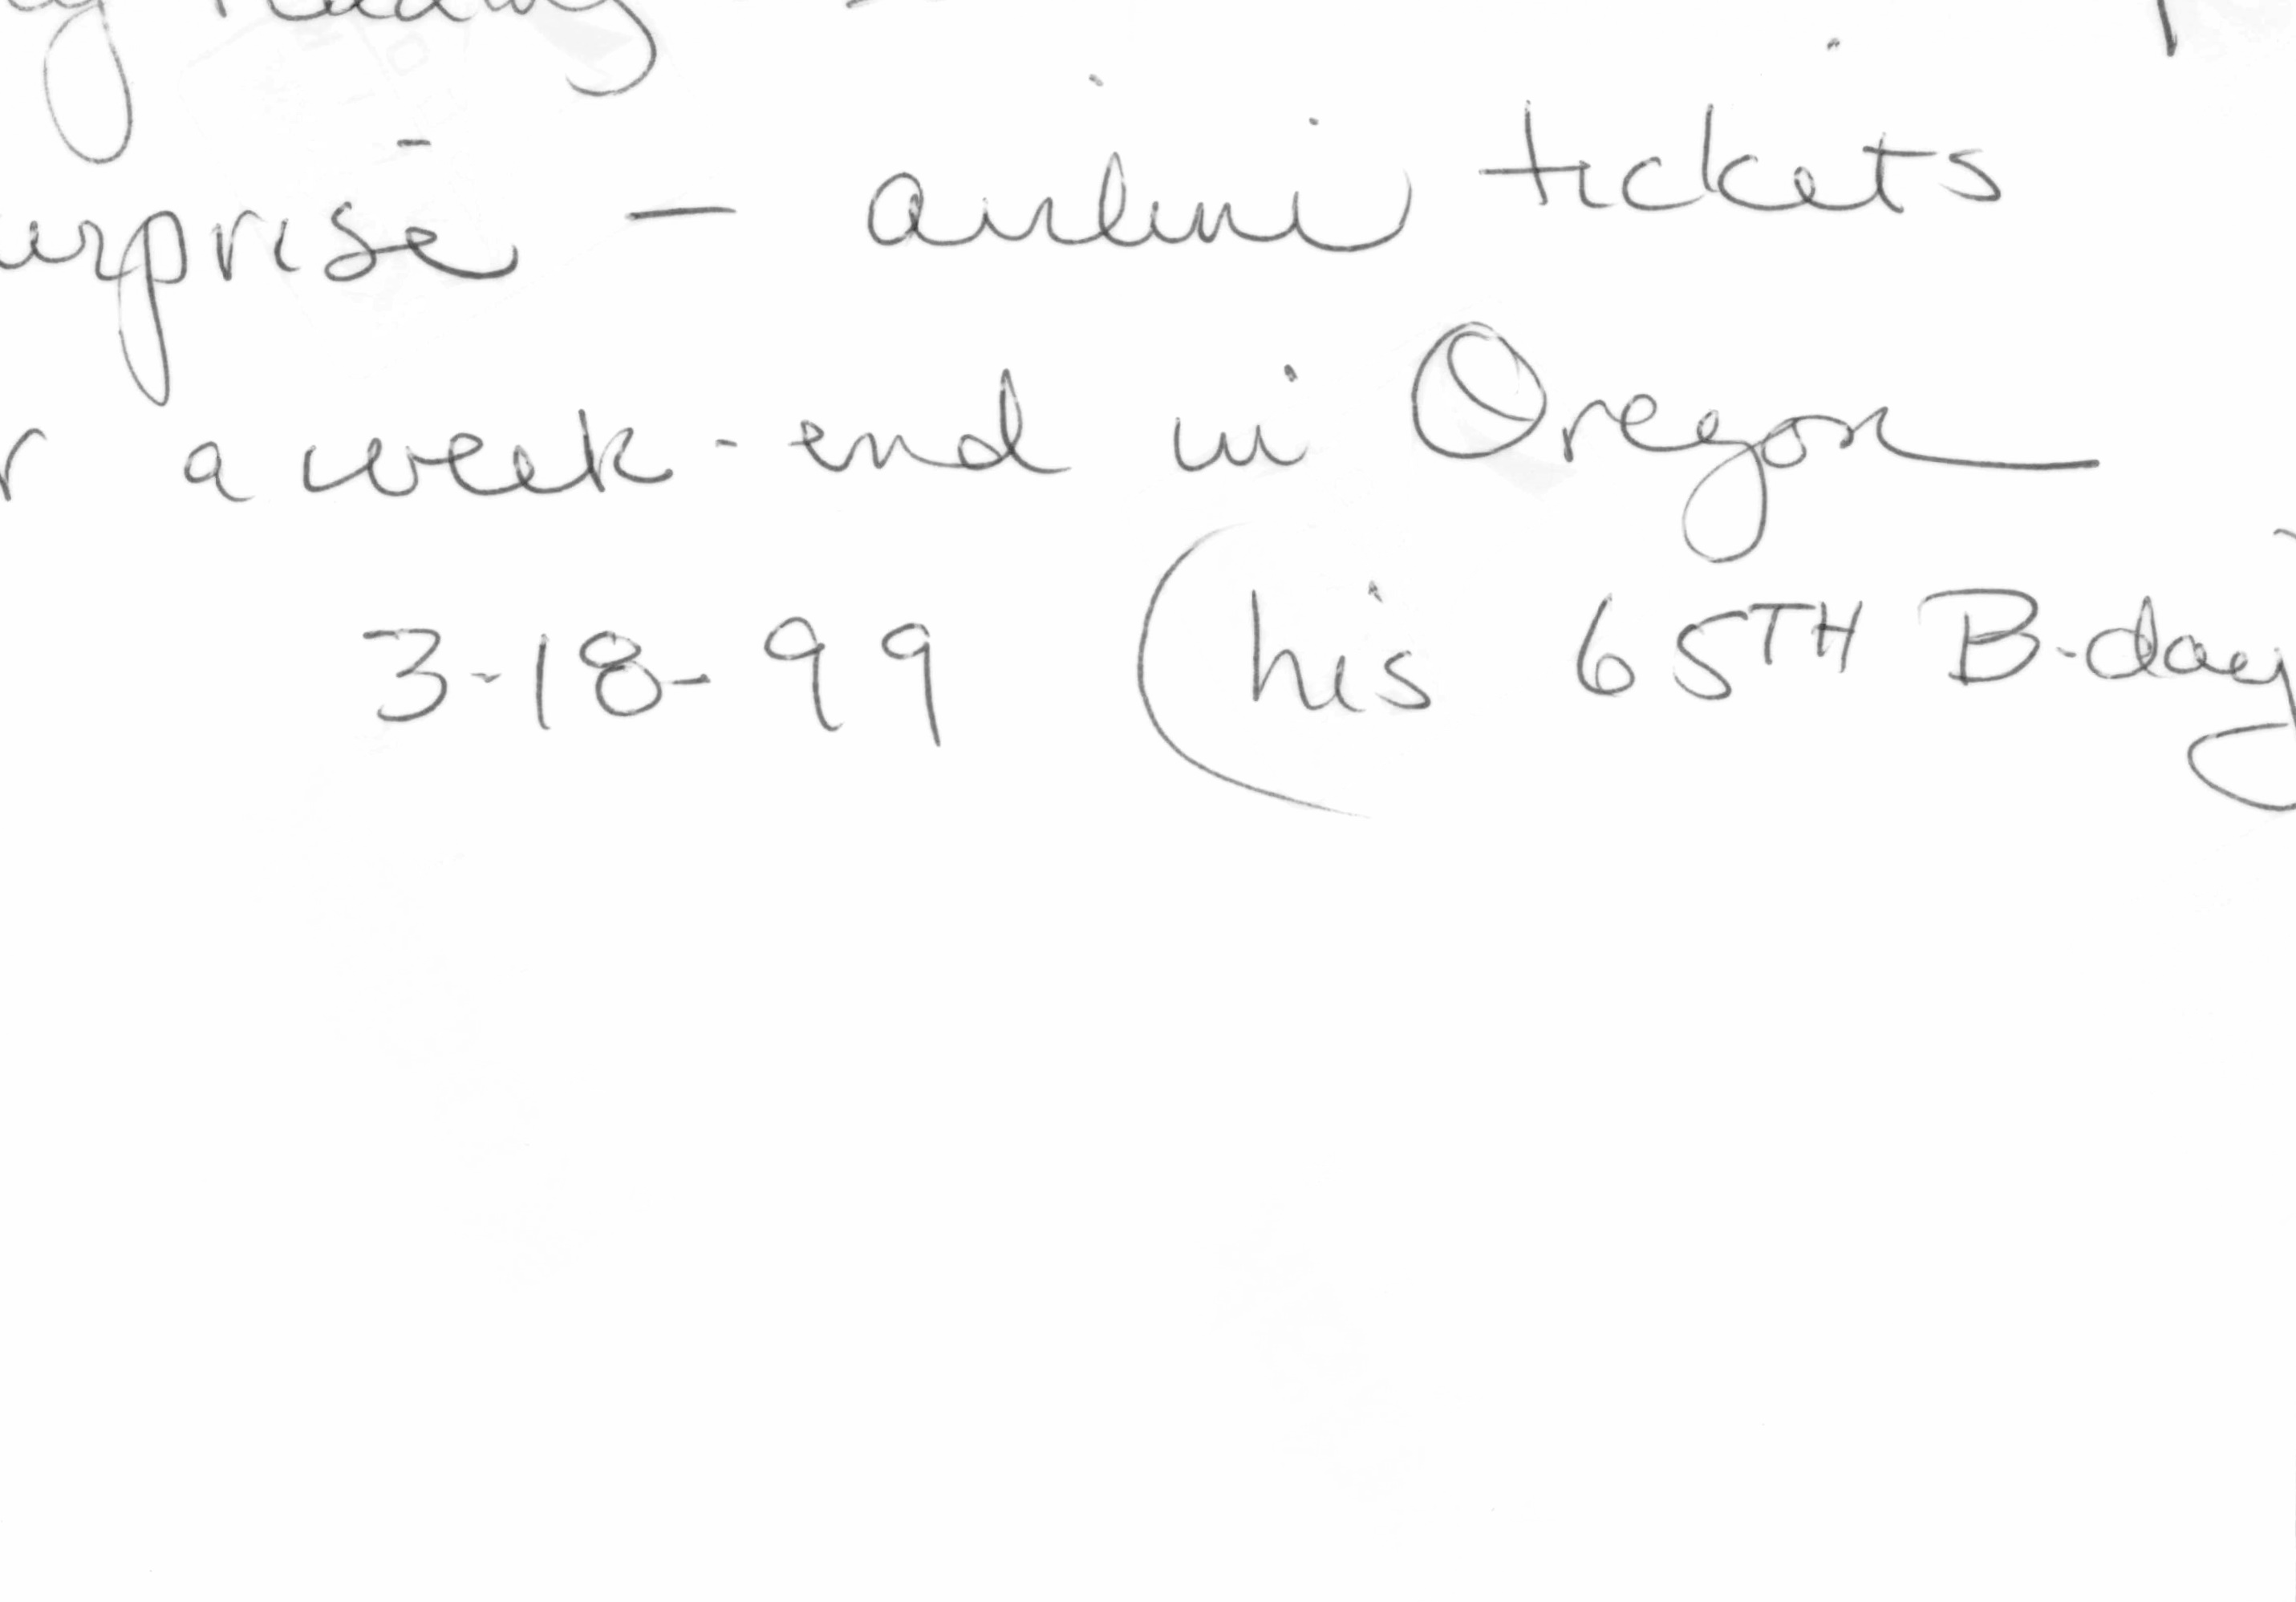 urprise — airline tickets
r a week-end in Oregon
3-18-99 (his 65TH B-day